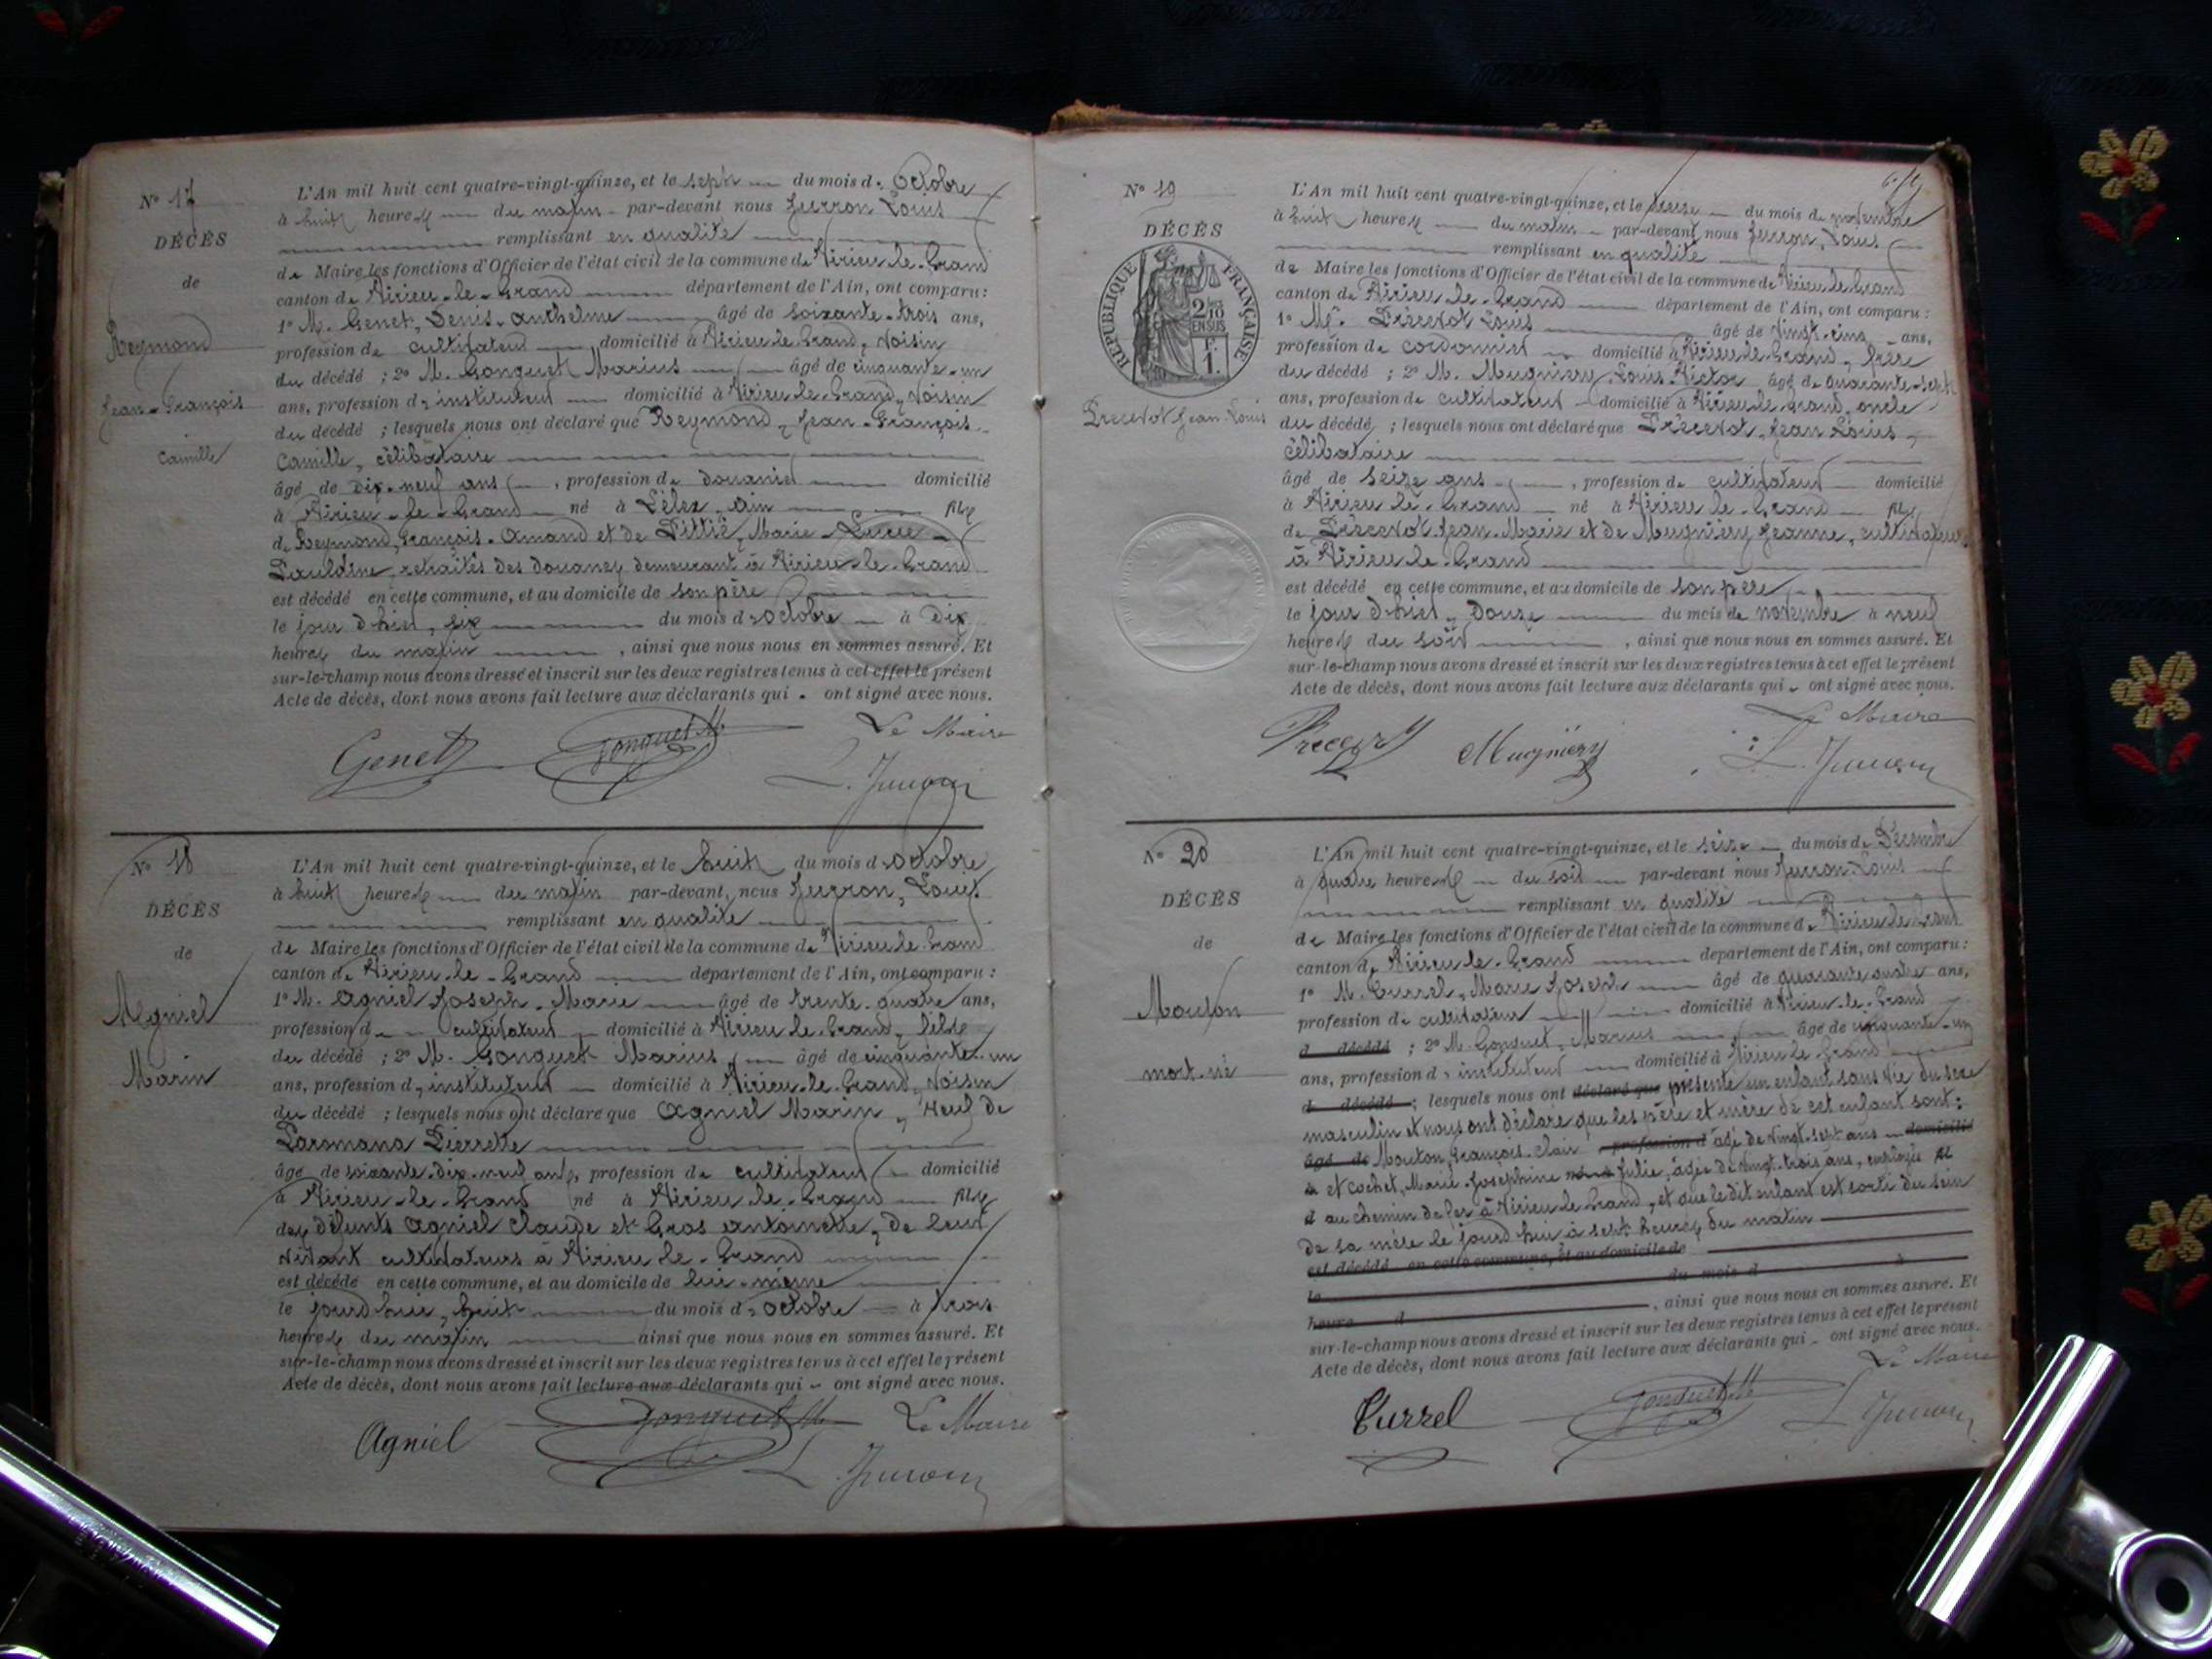 N° 17
DÉCÈS
de
Reymond
Jean-François
Camille
L'An mil huit cent quatre-vingt-quinze, et le sept du mois d'Octobre
à huit heures du matin par-devant nous Jurron Louis
remplissant en qualité
de Maire les fonctions d'Officier de l'état civil de la commune de Virieu-le-Grand
canton de Virieu-le-Grand département de l'Ain, ont comparu :
1° M. Genet, Denis-Anthelme âgé de soixante-trois ans,
profession de cultivateur domicilié à Virieu-le-Grand, voisin
du décédé ; 2° M. Gonguet Marius âgé de cinquante-un
ans, profession d'instituteur domicilié à Virieu-le-Grand, voisin
du décédé ; lesquels nous ont déclaré que Reymond, Jean-François
Camille, célibataire
âgé de dix-neuf ans, profession de douanier domicilié
à Virieu-le-Grand né à Lélex, Ain fils
de Reymond, François-Amand et de Marie
retraités des douanes demeurant à Virieu-le-Grand
est décédé en cette commune, et au domicile de son père
le jour d'hier, six du mois d'octobre à dix
heures du matin, ainsi que nous nous en sommes assuré. Et
sur-le-champ nous avons dressé et inscrit sur les deux registres tenus à cet effet le présent
Acte de décès, dont nous avons fait lecture aux déclarants qui ont signé avec nous.
Le Maire
Genet Gonguet M. L. Jurron
N° 18
DÉCÈS
de
Agniel
Marin
L'An mil huit cent quatre-vingt-quinze, et le huit du mois d'octobre
à huit heures du matin par-devant nous Jurron, Louis
remplissant en qualité
de Maire les fonctions d'Officier de l'état civil de la commune de Virieu-le-Grand
canton de Virieu-le-Grand département de l'Ain, ont comparu :
1° M. Agniel Joseph-Marie âgé de trente-quatre ans,
profession de cultivateur domicilié à Virieu-le-Grand, fils
du décédé ; 2° M. Gonguet Marius, âgé de cinquante-un
ans, profession d'instituteur domicilié à Virieu-le-Grand, voisin
du décédé ; lesquels nous ont déclaré que Agniel Marin, veuf de
Pierrette
âgé de soixante-dix-neuf ans, profession de cultivateur domicilié
à Virieu-le-Grand né à Virieu-le-Grand fils
des défunts Agniel Claude et Gros Antoinette, de leur
vivant cultivateurs à Virieu-le-Grand
est décédé en cette commune, et au domicile de lui-même
le jourd'hui, huit du mois d'octobre à trois
heures du matin ainsi que nous nous en sommes assuré. Et
sur-le-champ nous avons dressé et inscrit sur les deux registres tenus à cet effet le présent
Acte de décès, dont nous avons fait lecture aux déclarants qui ont signé avec nous.
Agniel Gonguet M. Le Maire
L. Jurron
N° 19
DÉCÈS
RÉPUBLIQUE FRANÇAISE
2/10 EN SUS
1 F.
Précevot Jean-Louis
L'An mil huit cent quatre-vingt-quinze, et le treize du mois de novembre
à huit heures du matin par-devant nous Jurron, Louis
remplissant en qualité
de Maire les fonctions d'Officier de l'état civil de la commune de Virieu-le-Grand
canton de Virieu-le-Grand département de l'Ain, ont comparu :
1° M. Précevot Louis âgé de vingt-cinq ans,
profession de cordonnier domicilié à Virieu-le-Grand, frère
du décédé ; 2° M. Mugniery Louis-Victor âgé de quarante-sept
ans, profession de cultivateur domicilié à Virieu-le-Grand, oncle
du décédé ; lesquels nous ont déclaré que Précevot, Jean Louis,
célibataire
âgé de seize ans, profession de cultivateur domicilié
à Virieu-le-Grand né à Virieu-le-Grand fils
de Précevot Jean-Marie et de Mugniery Jeanne, cultivateurs
à Virieu-le-Grand
est décédé en cette commune, et au domicile de son père
le jour d'hier, douze du mois de novembre à neuf
heures du soir, ainsi que nous nous en sommes assuré. Et
sur-le-champ nous avons dressé et inscrit sur les deux registres tenus à cet effet le présent
Acte de décès, dont nous avons fait lecture aux déclarants qui ont signé avec nous.
Le Maire
Mugniery L. Jurron
N° 20
DÉCÈS
de
Mouton
mort-né
L'An mil huit cent quatre-vingt-quinze, et le seize du mois de Décembre
à quatre heures du soir par-devant nous Jurron Louis
remplissant en qualité
de Maire les fonctions d'Officier de l'état civil de la commune de Virieu-le-Grand
canton de Virieu-le-Grand département de l'Ain, ont comparu :
1° M. Currel, Marie Joseph âgé de quarante-quatre ans,
profession de cultivateur domicilié à Virieu-le-Grand
d décédé ; 2° M. Gonguet, Marius âgé de cinquante-un
ans, profession d'instituteur domicilié à Virieu-le-Grand
d décédé ; lesquels nous ont déclaré que présenté un enfant sans vie du sexe
masculin et nous ont déclaré que les père et mère de cet enfant sont :
âgé de Mouton, François-Clair profession d âgé de vingt-sept ans domicilié
à et Cochet, Marie-Josephine Julie, âgée de vingt-trois ans, employés fil
d au chemin de fer à Virieu-le-Grand, et que le dit enfant est sorti du sein
de sa mère le jourd'hui à sept heures du matin
est décédé en cette commune, et au domicile de
le du mois d à
heure d, ainsi que nous nous en sommes assuré. Et
sur-le-champ nous avons dressé et inscrit sur les deux registres tenus à cet effet le présent
Acte de décès, dont nous avons fait lecture aux déclarants qui ont signé avec nous.
Le Maire
Currel Gonguet M. L. Jurron